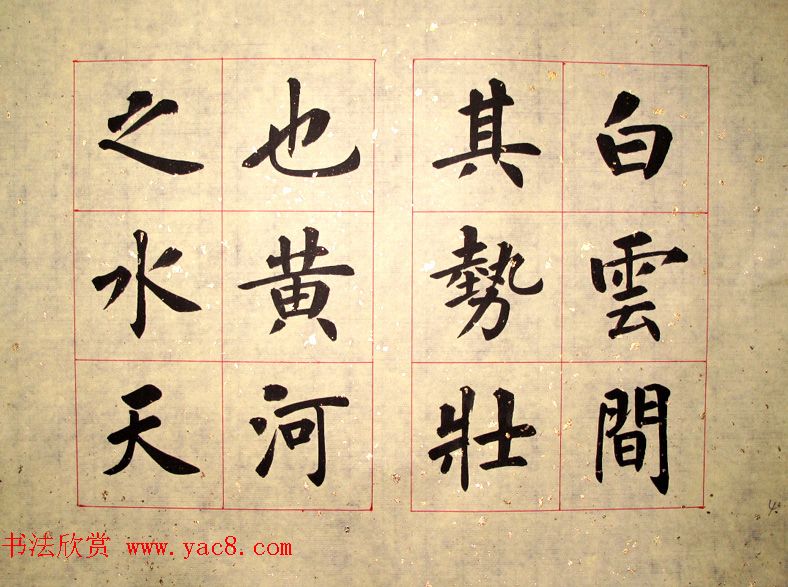 白雲間
其勢壯
也黄河
之水天
4.
书法欣赏 www.yac8.com